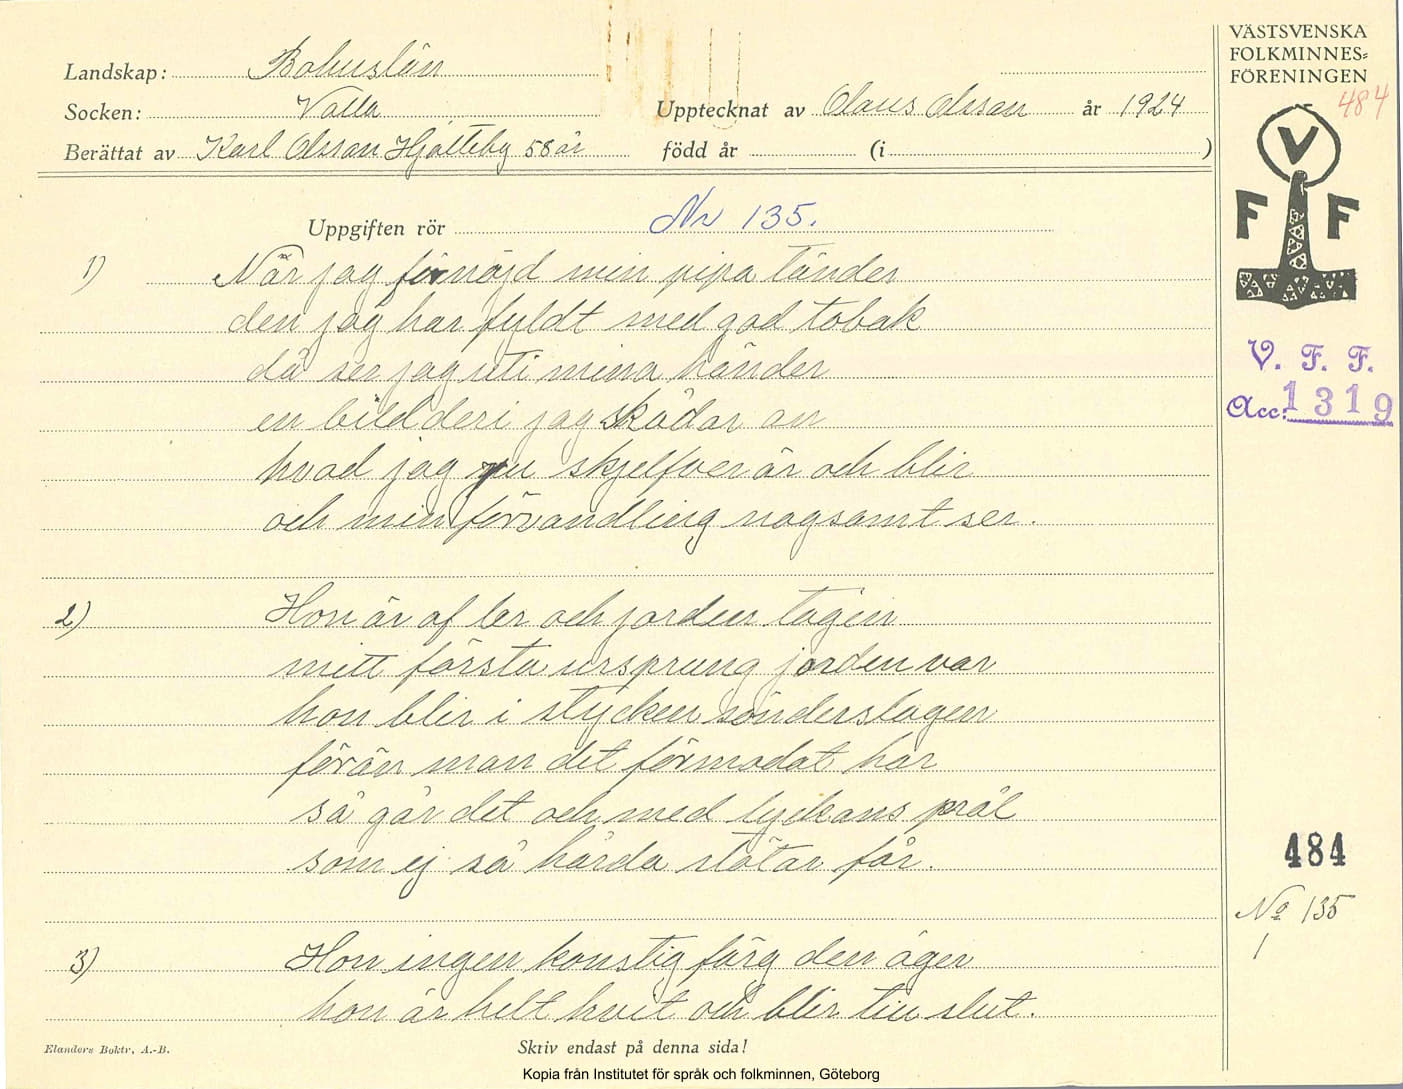 Landskap: Bohuslän
Socken: Valla
Upptecknat av Claus Olsson år 1924
Berättat av Karl Olsson Hjälteby 58 år
född år (i )
VÄSTSVENSKA
FOLKMINNES=
FÖRENINGEN
484
V
F F
V. F. F.
Acc: 1319
Uppgiften rör Nr 135.
1) När jag förnöjd min pipa tänder
den jag har fyldt med god tobak
då ser jag uti mina händer
en bild deri jag skådar an
hvad jag nu skjelfver är och blir
och min förvandling nogsamt ser.
2) Hon är af ler och jorden tagen
mitt första ursprung jorden var
hon blir i stycken sönderslagen
förän man det förmodat har
så går det och med lyckans prål
som ej så hårda stötar får.
484
No 135
1
3) Hon ingen konstig färg den äger
hon är helt hvit och blir till slut.
Elanders Boktr, A.-B.
Skriv endast på denna sida!
Kopia från Institutet för språk och folkminnen, Göteborg